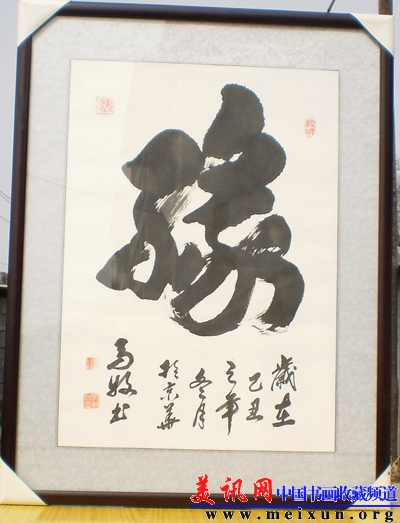 缘
歲在
己丑
之年
冬月
於京華
美讯网 中国书画收藏频道
www.meixun.org